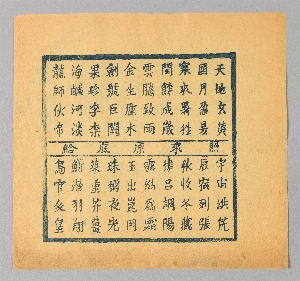 天地玄黃
日月盈昃
寒來暑往
閏餘成歲
雲騰致雨
金生麗水
劍號巨闕
果珍李柰
海鹹河淡
龍師火帝
照票原底給
宇宙洪荒
辰宿列張
秋收冬藏
律呂調陽
露結為霜
玉出崑岡
珠稱夜光
菜重芥薑
鱗潛羽翔
鳥官人皇